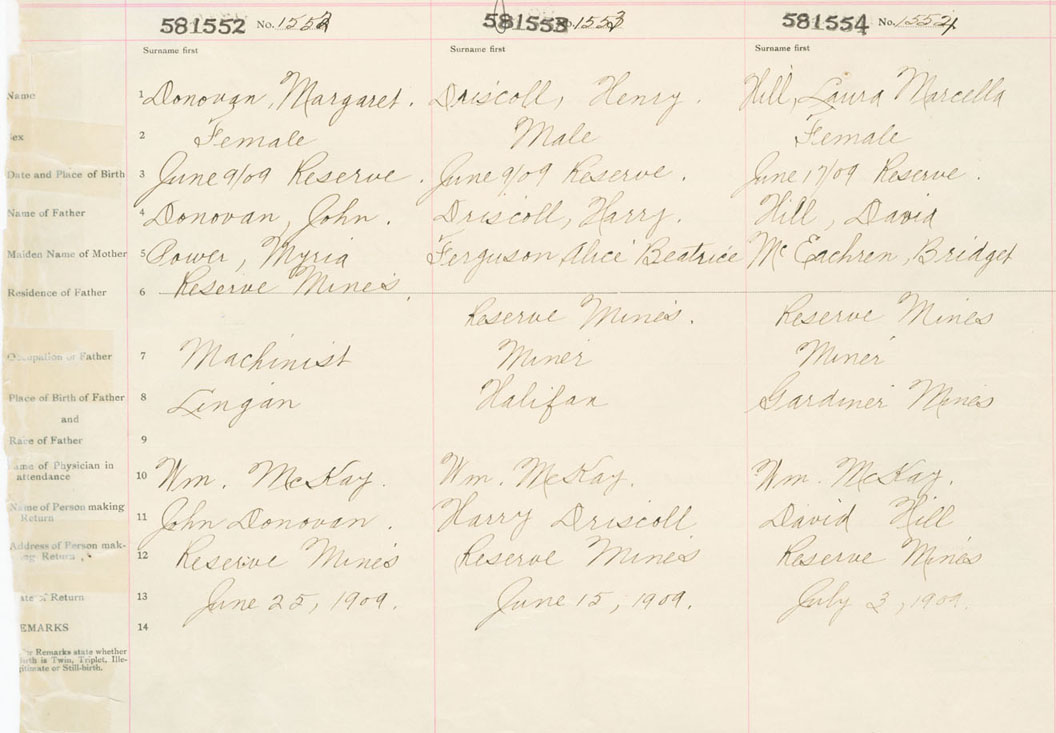 581552 No. 1552 581553 No. 1553 581554 No. 1554
Surname first Surname first Surname first
Name 1 Donovan, Margaret. Driscoll, Henry. Hill, Laura Marcella
Sex 2 Female Male Female
Date and Place of Birth 3 June 9/09 Reserve. June 9/09 Reserve. June 17/09 Reserve.
Name of Father 4 Donovan, John. Driscoll, Harry. Hill, David
Maiden Name of Mother 5 Power, Myria Ferguson Alice Beatrice McEachren, Bridget
Residence of Father 6 Reserve Mines. Reserve Mines. Reserve Mines
Occupation of Father 7 Machinist Miner Miner
Place of Birth of Father 8 Lingan Halifax Gardiner Mines
and
Race of Father 9
Name of Physician in
attendance 10 Wm. McKay. Wm. McKay. Wm. McKay.
Name of Person making
Return 11 John Donovan. Harry Driscoll David Hill
Address of Person mak-
ing Return 12 Reserve Mines Reserve Mines Reserve Mines
ate of Return 13 June 25, 1909. June 15, 1909. July 3, 1909.
EMARKS 14
Remarks state whether
irth is Twin, Triplet, Ille-
gitimate or Still-birth.